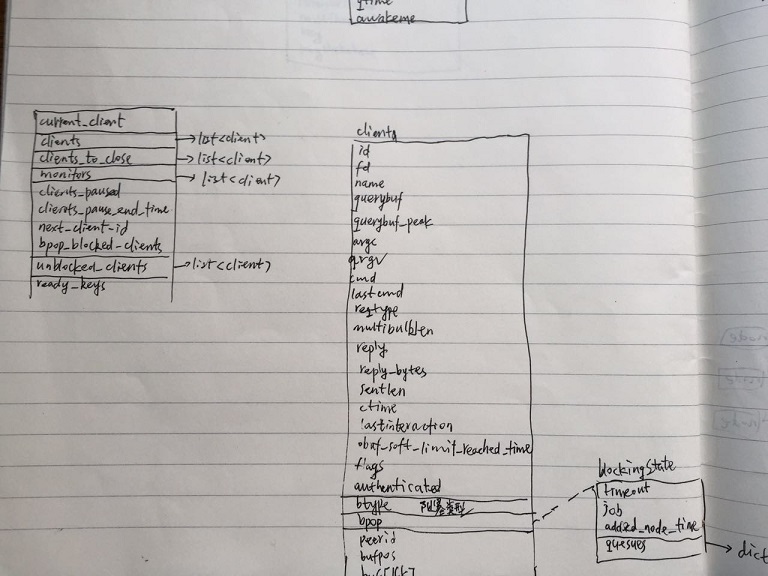 qtime
awakeme
current_client
clients → list<client>
clients_to_close → list<client>
monitors → list<client>
clients_paused
clients_pause_end_time
next_client_id
bpop_blocked_clients
unblocked_clients → list<client>
ready_keys
client
id
fd
name
querybuf
querybuf_peak
argc
argv
cmd
lastcmd
reqtype
multibulklen
reply
reply_bytes
sentlen
ctime
lastinteraction
obuf_soft_limit_reached_time
flags
authenticated
btype 阻塞类型
bpop
peerid
bufpos
blockingState
timeout
job
added_node_time
quesues → dict